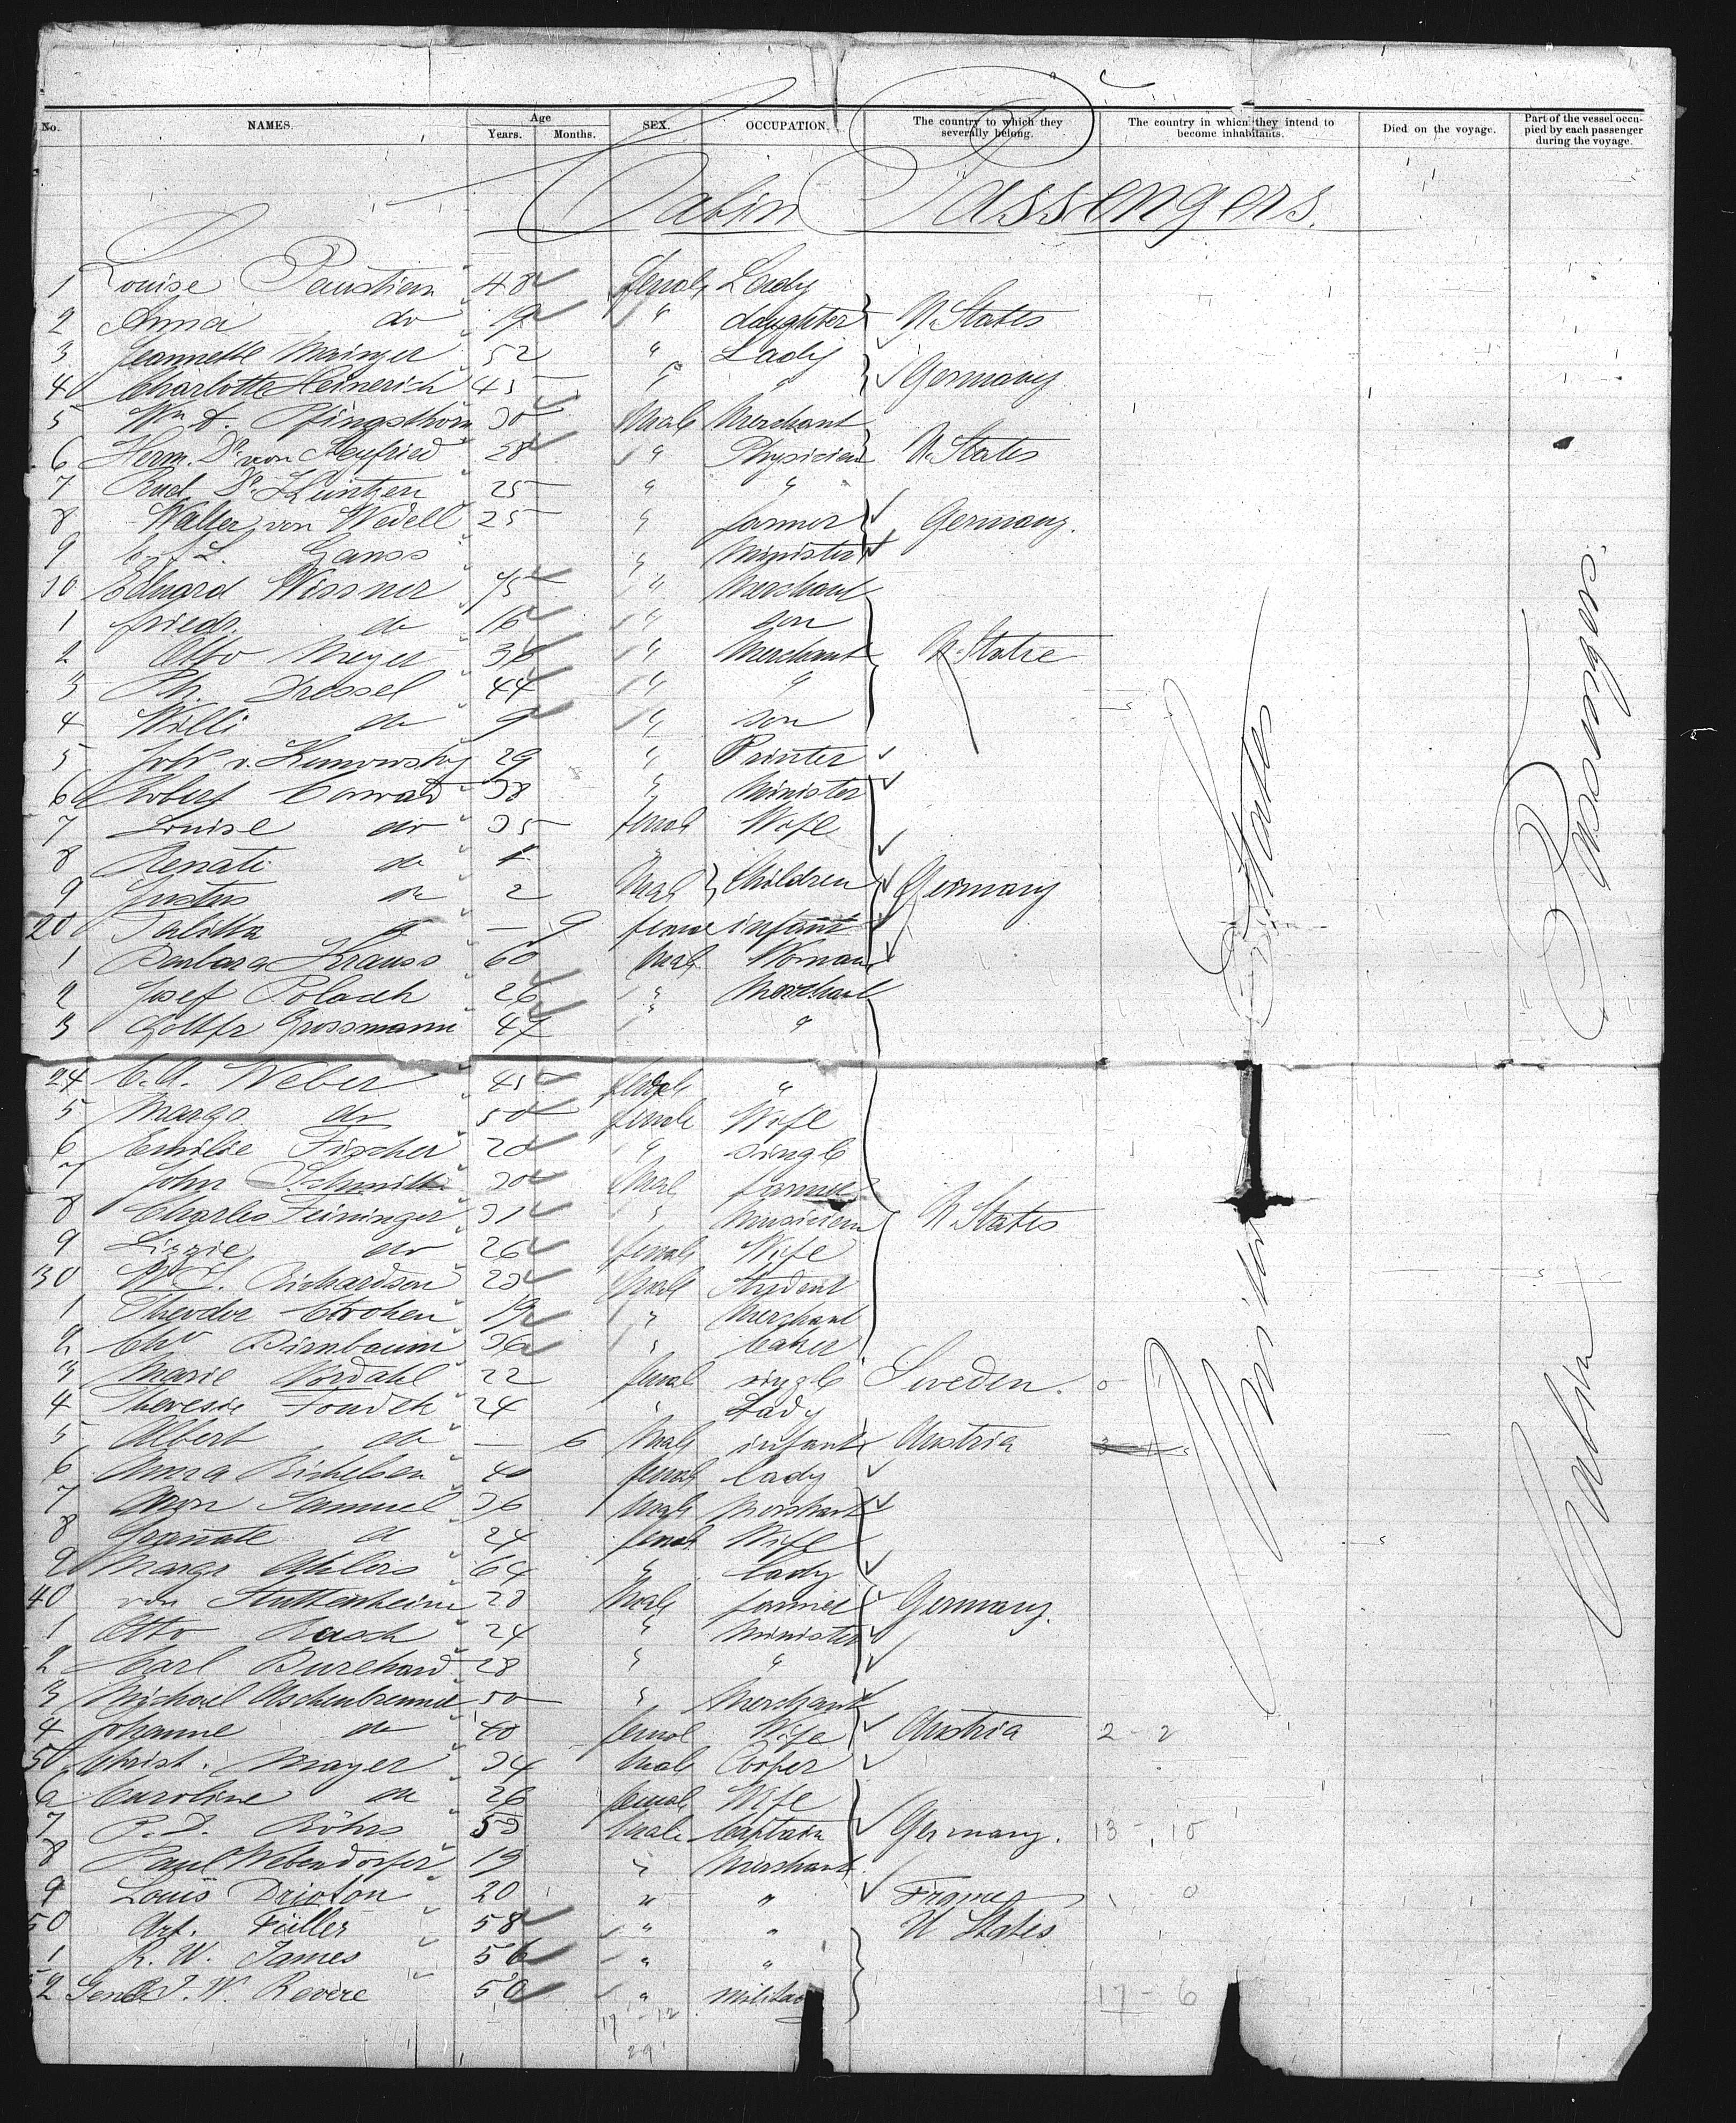 No. NAMES. Age Years. Months. SEX. OCCUPATION. The country to which they severally belong. The country in which they intend to become inhabitants. Died on the voyage. Part of the vessel occupied by each passenger during the voyage.
Cabin Passengers.
1 Louise Paustian 48 female Lady
2 Anna do 19 " daughter U. States
3 Jeannette Mainzer 52 " Lady
4 Charlotte Heinerich 45 " " Germany
5 Wm A. Pfingsthorn 30 Male Merchant
6 Herm. Dr. von 28 " Physician U. States
7 Rud. Dr. 25 " "
8 Walter von Wedell 25 " farmer Germany.
9 L. Ganss " Minister
10 Eduard Wissner 45 " Merchant
1 Friedr. do 16 " son
2 Otto Meyer 36 " Merchant U. State
3 Ph. Dressel 44 " "
4 Willi do 9 " son
5 29 " Printer
6 Robert Conrad 38 " Minister
7 Louise do 35 female Wife
8 Renati do 4
9 Justus do 2 Male Children Germany
20 Talitha do — 9 female infant
1 Barbara Krauss 60 Male Woman
2 Josef Polack 26 " Merchant
3 Gottfr Grossmann 47 "
24 C. A. Weber 45 "
5 Marga do 50 female Wife
6 Emilie Fischer 20 " single
7 John Schmitt 30 Male farmer
8 Charles Feininger 31 " Musician U. States
9 Lizzie do 26 female Wife
30 Richardson 20 Male Student
1 Theodor 19 " Merchant
2 Chr Birnbaum 36 " baker
3 Marie Nordahl 22 female single Sweden.
4 Therese 24 " Lady
5 Albert do — 6 Male infant Austria
6 Anna 40 female lady
7 Aron Samuel 36 Male Merchant
8 Jeanette do 24 female Wife
9 Margr Ahlers 64 " lady
40 von Stuttenheim 28 Male farmer Germany.
1 Otto Rasch 24 " Minister
2 Carl Burchard 28 " "
3 Michael Aschenbrenner 50 " Merchant
4 Johanne do 40 female Wife Austria 2 - 2
50 Christ. Mayer 34 Male Cooper
6 Caroline do 26 female Wife
7 P. D. Böhrs 53 Male Captain Germany. 13 - 10
8 Paul Webendörfer 19 " Merchant
9 Louis Drioton 20 " " France 1 0
50 Art. Füller 58 " " U States
1 R. W. James 56 " "
52 Genrl J. W. Revere 50 " military 17 - 6
17 - 12
29
United States
Cabin Passengers.